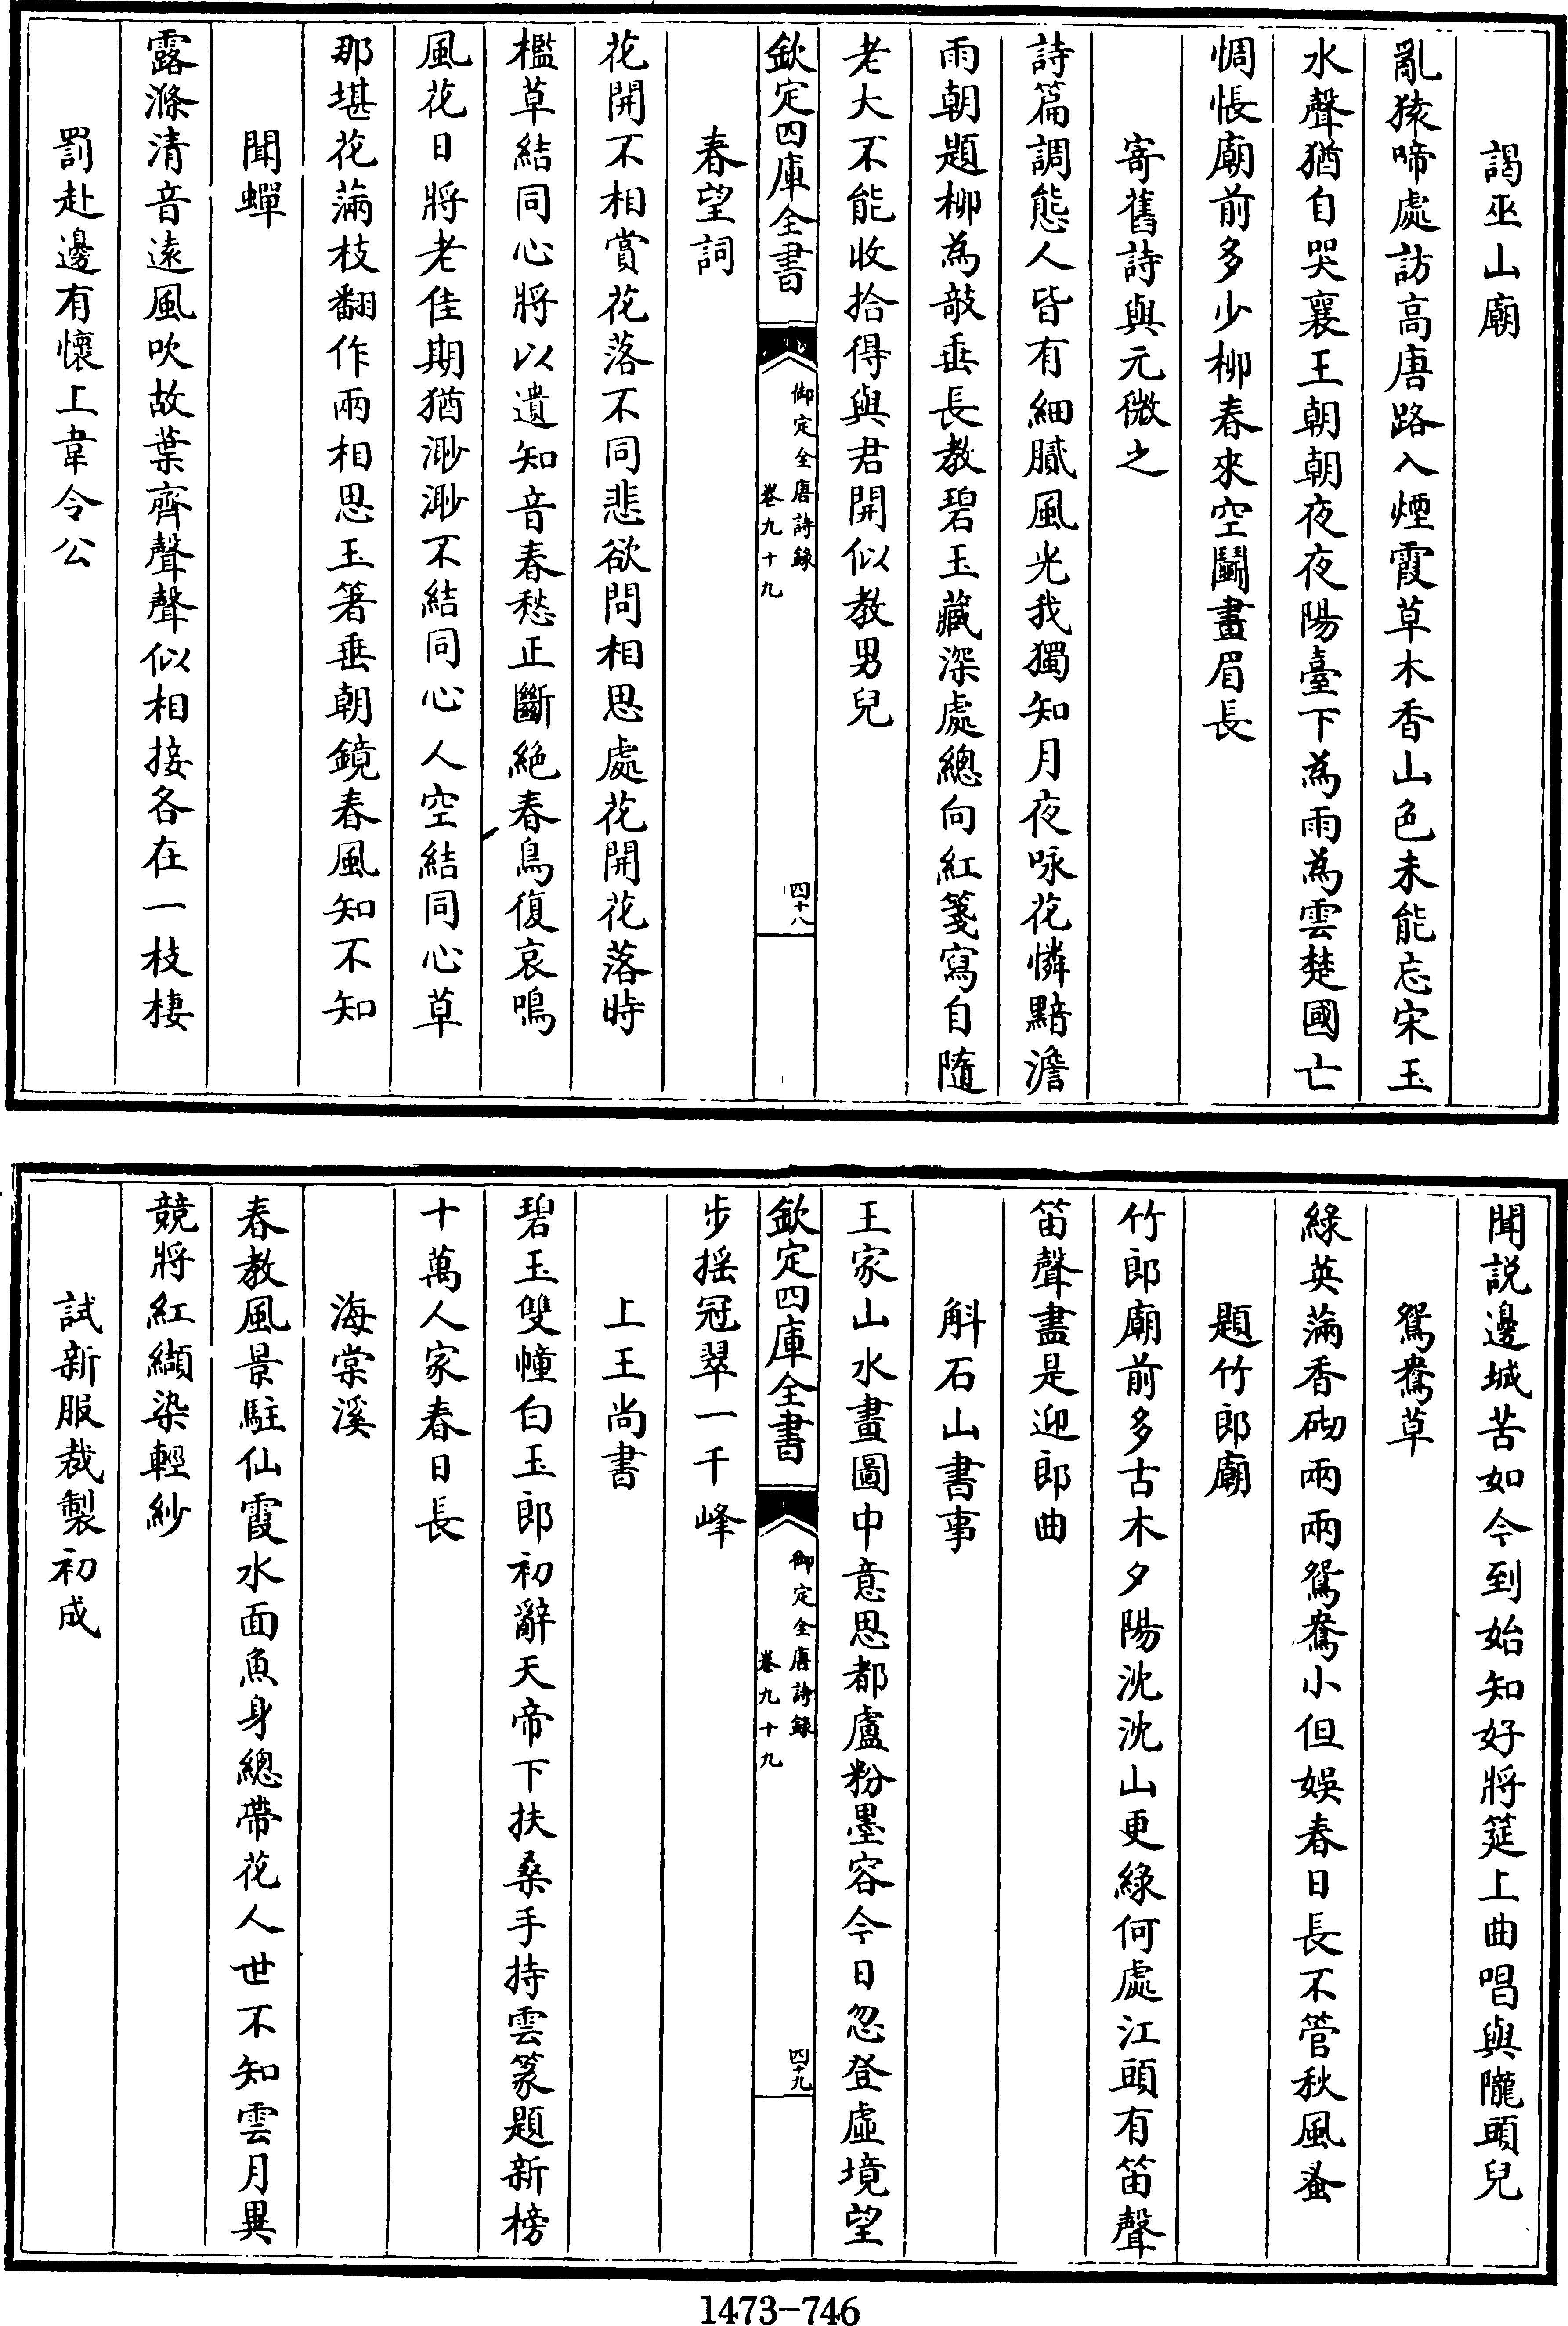 謁巫山廟
亂猿啼處訪高唐路入煙霞草木香山色未能忘宋玉
水聲猶自哭襄王朝朝夜夜陽臺下為雨為雲楚國亡
惆悵廟前多少柳春來空鬭畫眉長
寄舊詩與元微之
詩篇調態人皆有細膩風光我獨知月夜咏花憐黯澹
雨朝題柳為敧垂長教碧玉藏深處總向紅箋寫自隨
老大不能收拾得與君開似教男兒
欽定四庫全書
御定全唐詩錄
卷九十九
四十八
春望詞
花開不相賞花落不同悲欲問相思處花開花落時
檻草結同心將以遺知音春愁正斷絕春鳥復哀鳴
風花日將老佳期猶渺渺不結同心人空結同心草
那堪花滿枝翻作兩相思玉箸垂朝鏡春風知不知
聞蟬
露滌清音遠風吹故葉齊聲聲似相接各在一枝棲
罰赴邊有懷上韋令公
聞説邊城苦如今到始知好將筵上曲唱與隴頭兒
鴛鴦草
綠英滿香砌兩兩鴛鴦小但娛春日長不管秋風蚤
題竹郎廟
竹郎廟前多古木夕陽沈沈山更綠何處江頭有笛聲
笛聲盡是迎郎曲
斛石山書事
王家山水畫圖中意思都盧粉墨容今日忽登虛境望
欽定四庫全書
御定全唐詩錄
卷九十九
四十九
步揺冠翠一千峰
上王尚書
碧玉雙幢白玉郎初辭天帝下扶桑手持雲篆題新榜
十萬人家春日長
海棠溪
春教風景駐仙霞水面魚身總帶花人世不知雲月異
競將紅纈染輕紗
試新服裁製初成
1473-746